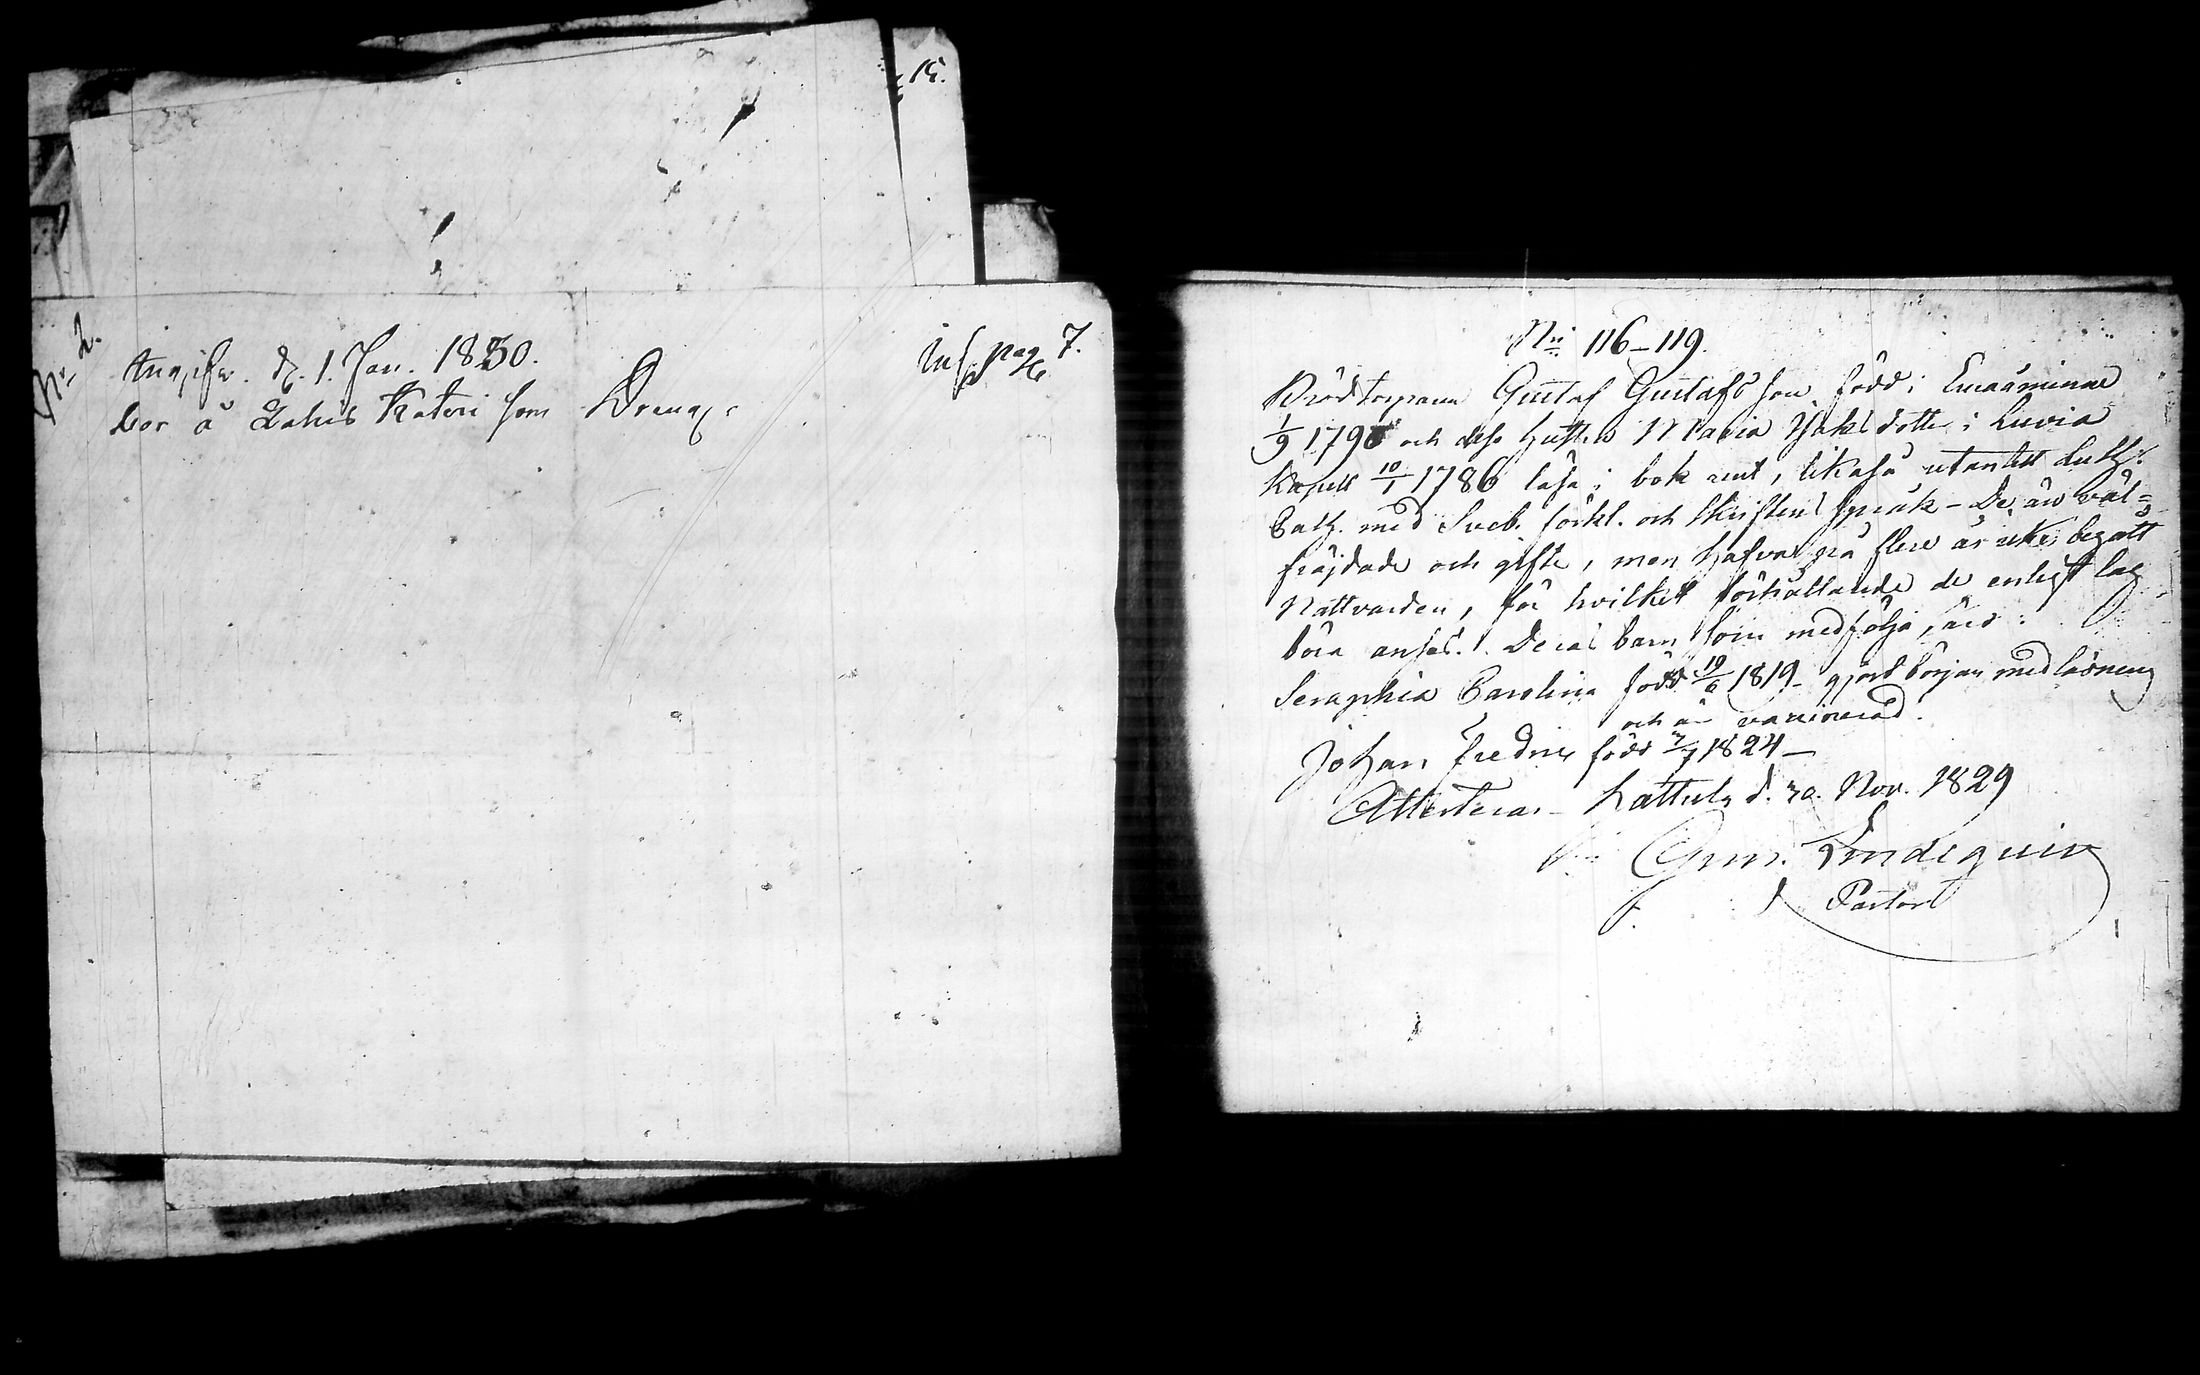 15.
No 2.
Angifv. d. 1. Jan. 1830.
Insp pag 7.
bor å Lahis Kateri som Dräng.
No 116-119.
Brödtorparen Gustaf Gustafsson född i Euraåminne
1/9 1790 och dess hustru Maria Jakobsdotter i Luvia
Kapell 10/1 1786 läsa i bok rent, likaså utantill Luth.
Cath. med Sveb. förkl. och Skriftens språk - De äro väl=
fräjdade och gifte, men hafva på flere år icke begått
Nattvarden, för hvilket förhållande de enligt lag
böra anses. Deras barn som medfölja, äro:
Seraphia Carolina född 19/6 1819 - gjort början med läsning
och är vaccinerad.
Johan Fredric född 7/7 1824 -
Attesteras - Hattula d. 30. Nov. 1829
Lindequist
Pastor